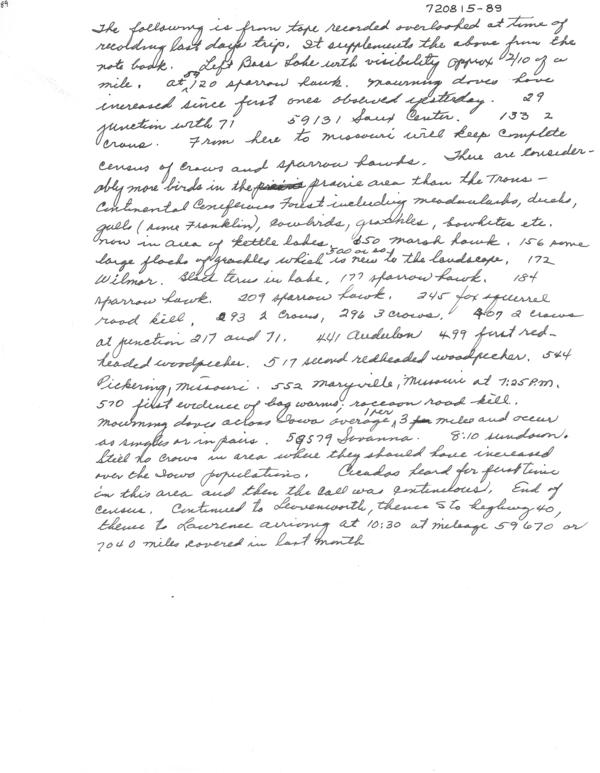 89
720815-89
The following is from tape recorded overlooked at time of
recording last days trip. It supplements the above from the
note book. Left Bass Lake with visibility approx 2/10 of a
mile. at 59,120 sparrow hawk. mourning doves have
increased since first ones observed yesterday. 29
junction with 71 59131 Sauk Center. 133 2
crows. From here to missouri will keep complete
census of crows and sparrow hawks. There are consider-
ably more birds in the prairie area than the Trans-
Continental Coniferous Forest including meadowlarks, ducks,
gulls (some Franklin), cowbirds, grackles, bowhites etc.
now in area of kettle lakes, 150 marsh hawk. 156 some
large flocks of grackles 500 or so, which is new to the landscape, 172
Wilmar. Black terns in lake, 177 sparrow hawk. 184
sparrow hawk. 209 sparrow hawk. 245 fox squirrel
road kill, 293 2 crows, 296 3 crows. 407 2 crows
at junction 217 and 71. 441 Audubon 499 first red-
headed woodpecker. 517 second redheaded woodpecker. 544
Pickering, Missouri. 552 Maryville, Missouri at 7:25 P.M.
570 first evidence of bag worms; raccoon road kill.
mourning doves across Iowa average 1 per 3 miles and occur
as singles or in pairs. 59579 Savanna. 8:10 sundown.
Still no crows in area where they should have increased
over the Iowa populations. Cicadas heard for first time
in this area and then the call was continuous. End of
census. Continued to Leavenworth, thence S to highway 40,
thence to Lawrence arriving at 10:30 at mileage 59670 or
7040 miles covered in last month